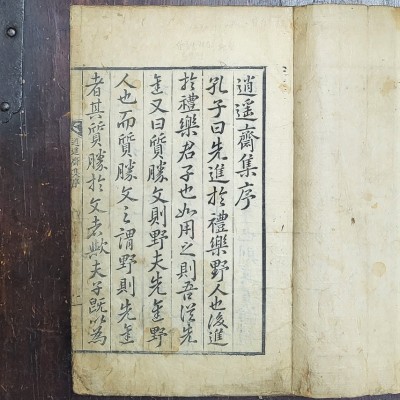 逍遥齋集序
孔子曰先進於禮樂野人也後進
於禮樂君子也如用之則吾從先
進又曰質勝文則野夫先進野
人也而質勝文之謂野則先進
者其質勝於文者歟夫子旣以爲
逍遥齋集序
一